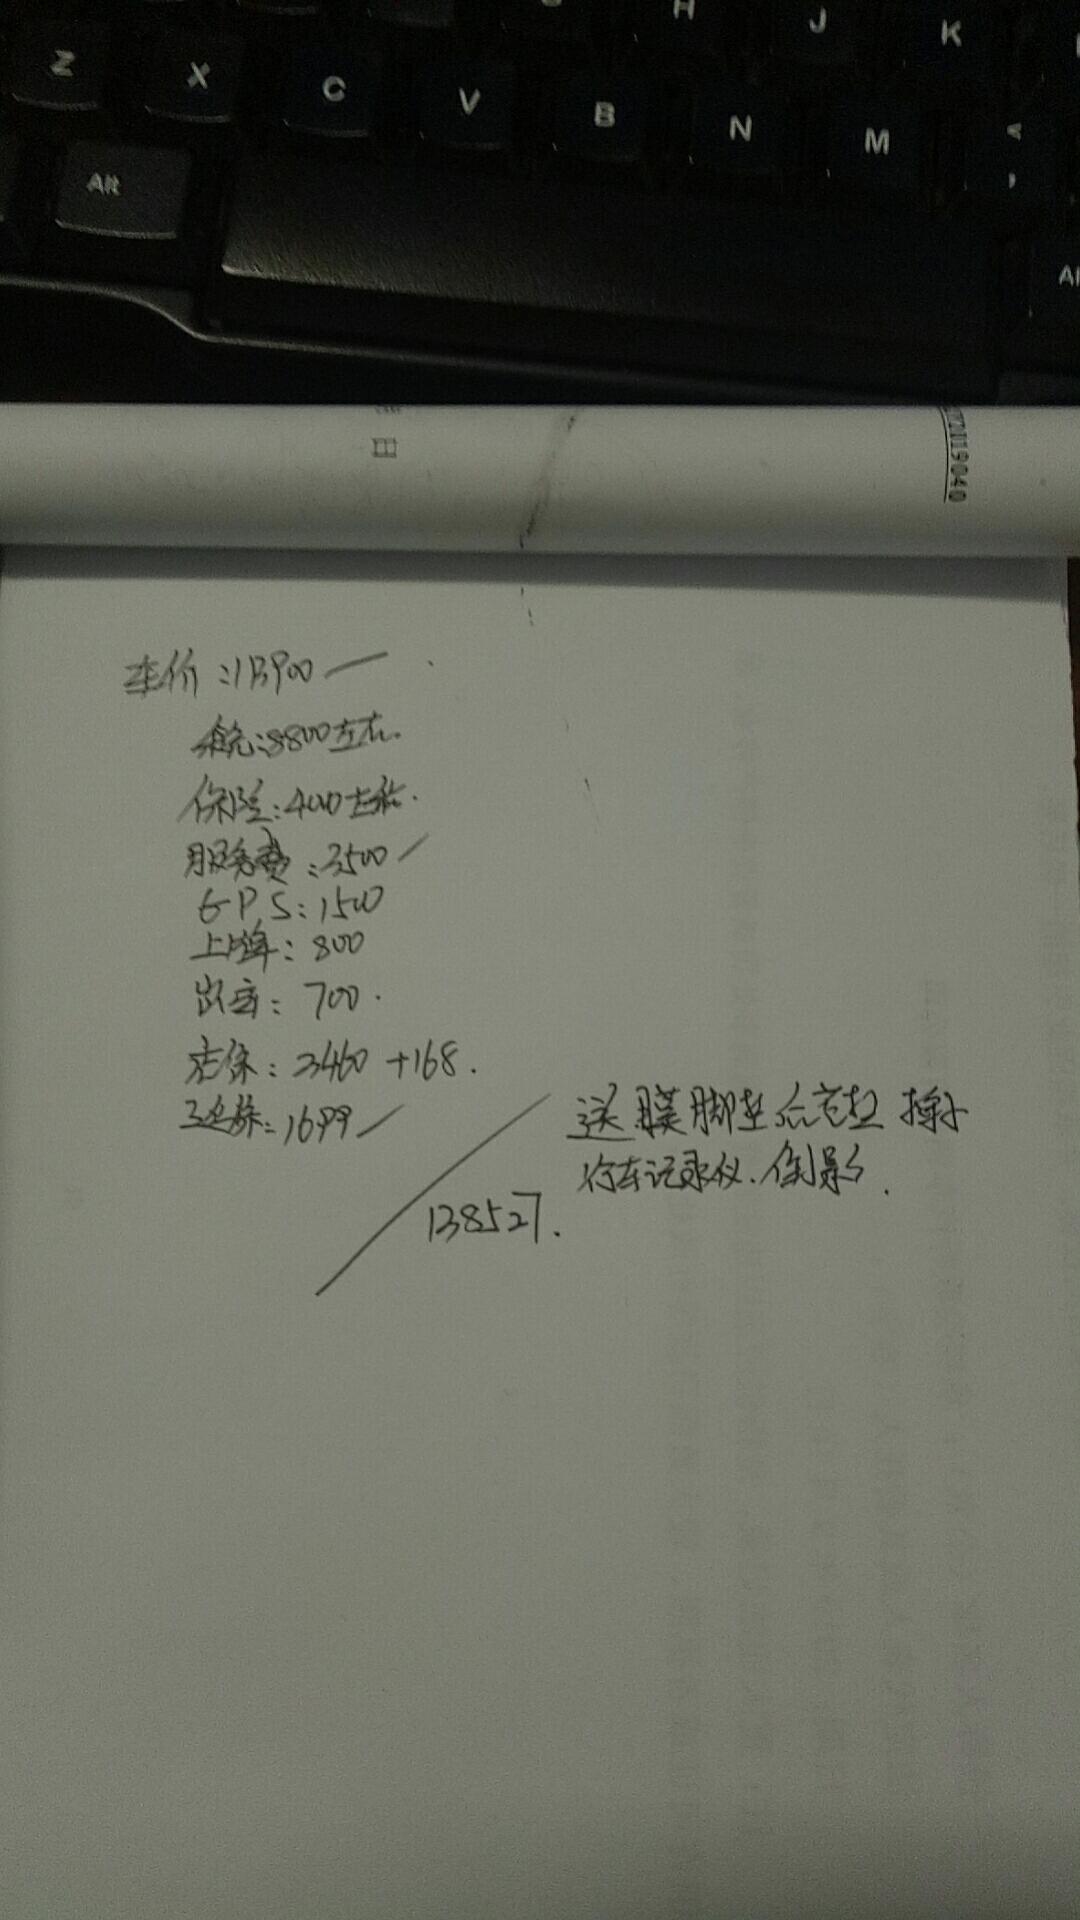 Z X C V B N M
H J K
Alt
日
2119040
车价:113900
税:8800左右.
保险:4000左右.
服务费:3500
GPS:1500
上牌:800
出库:700.
店保:3460+168.
延保:1699
送膜脚垫 掸子
行车记录仪.倒影.
138527.